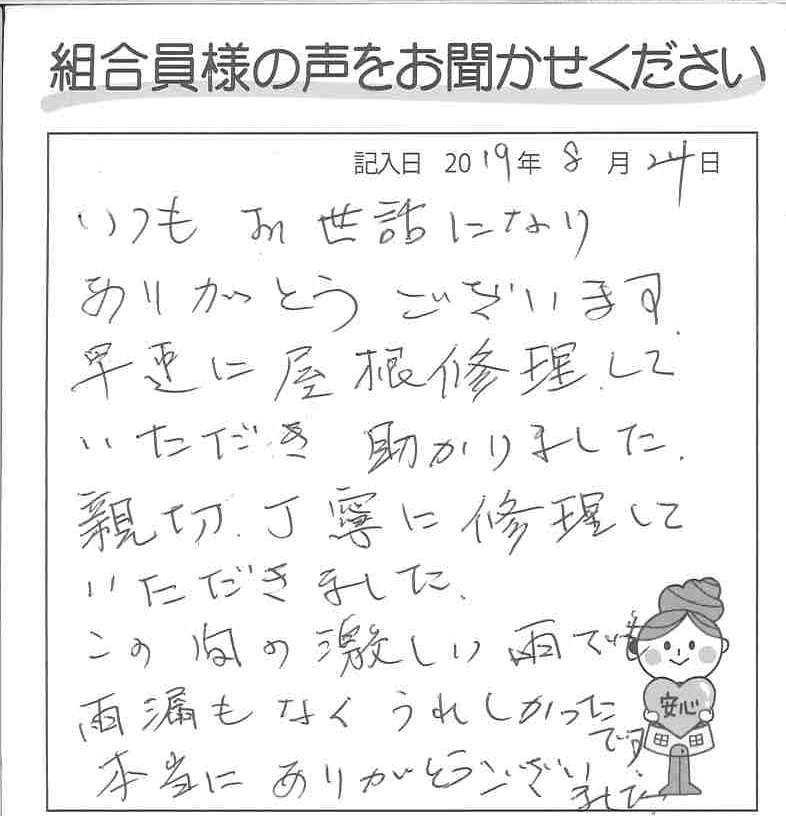 組合員様の声をお聞かせください
記入日 2019年 8月 24日
いつも お世話になり
ありがとう ございます.
早速に屋根修理して
いただき 助かりました.
親切.丁寧に修理して
いただきました.
この間の激しい雨でも
雨漏もなくうれしかった
です
本当にありがとうござい
ました
安心